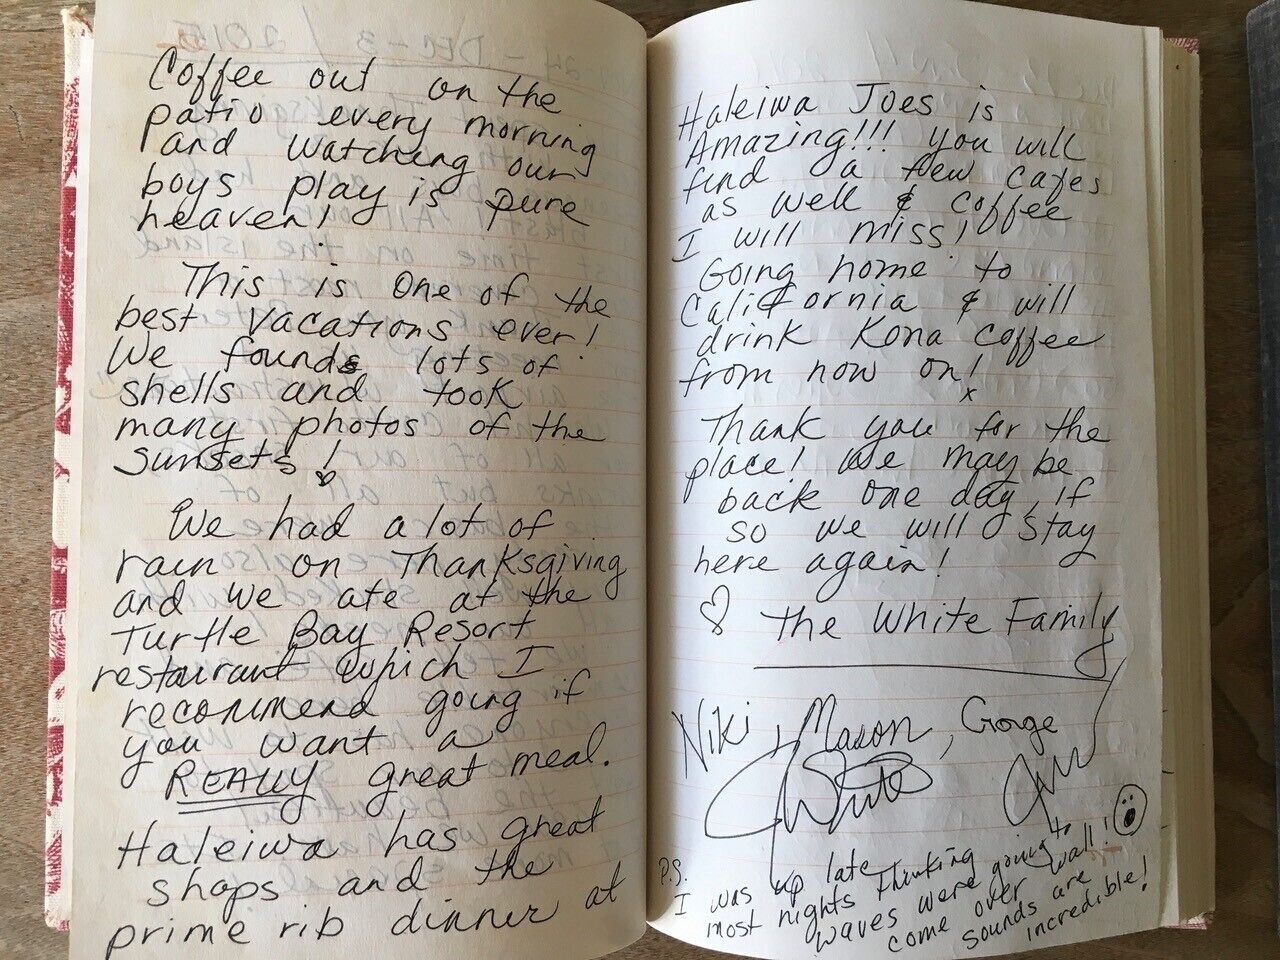 24 - DEC - 3 / 2015
Coffee out on the
patio every morning
and watching our
boys play is pure
heaven!
This is one of the
best vacations ever!
We founds lots of
shells and took
many photos of the
sunsets!
We had a lot of
rain on Thanksgiving
and we ate at the
Turtle Bay Resort
restaurant which I
recommend going if
you want a
REALLY great meal.
Haleiwa has great
shops and the
prime rib dinner at
Haleiwa Joes is
Amazing!!! you will
find a few cafes
as well & coffee
I will miss!
Going home to
California & will
drink Kona coffee
from now on!
Thank you for the
place! We may be
back one day, if
so we will stay
here again!
♡ The White Family
Niki, Mason, Gorge
White
P.S.
I was up late
most nights thinking
waves were going to
come over wall!
sounds are
incredible!